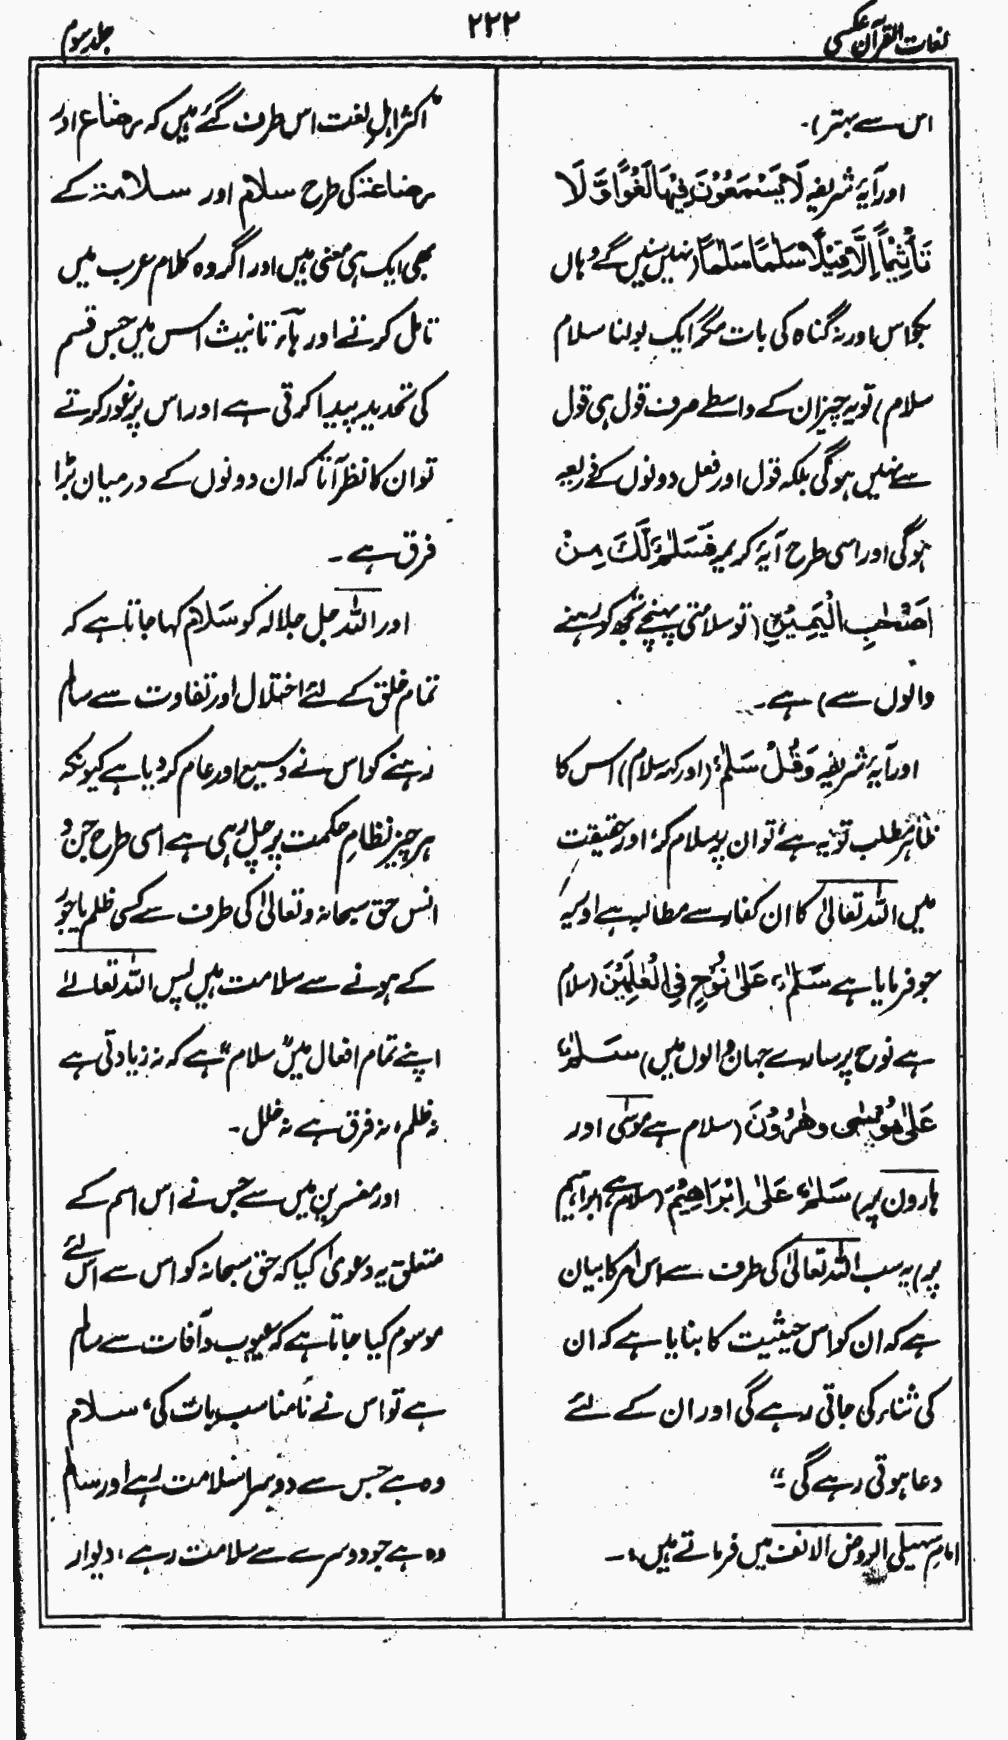 لغات القرآن عکسی
۲۲۲
جلد سوم
اس سے بہتر)۔
اور آیۂ شریفہ لَا یَسْمَعُوْنَ فِیْهَا لَغْوًا وَّ لَا
تَأْثِیْمًا اِلَّا قِیْلًا سَلٰمًا سَلٰمًا (نہیں سنیں گے وہاں
بکواس اور نہ گناہ کی بات مگر ایک بولنا سلام
سلام) تو یہ چیز ان کے واسطے صرف قول ہی قول
سے نہیں ہوگی بلکہ قول اور فعل دونوں کے ذریعہ
ہوگی اور اسی طرح آیۂ کریمہ فَسَلٰمٌ لَّكَ مِنْ
اَصْحٰبِ الْیَمِیْنِ (تو سلامتی پہنچے تجھ کو رہنے
والوں سے) ہے۔
اور آیۂ شریفہ وَقُلْ سَلٰمٌ (اور کہہ سلام) اس کا
ظاہر مطلب تو یہ ہے تو ان پر سلام کر، اور حقیقت
میں اللہ تعالیٰ کا ان کفار سے مطالبہ ہے اور یہ
جو فرمایا ہے سَلٰمٌ عَلٰی نُوْحٍ فِی الْعٰلَمِیْنَ (سلام
ہے نوح پر سارے جہان والوں میں) سَلٰمٌ
عَلٰی مُوْسٰی وَ هٰرُوْنَ (سلام ہے موسٰی اور
ہارون پر) سَلٰمٌ عَلٰی اِبْرَاهِیْمَ (سلام ہے ابراہیم
پر) یہ سب اللہ تعالیٰ کی طرف سے اس امر کا بیان
ہے کہ ان کو اس حیثیت کا بنایا ہے کہ ان
کی ثناء کی جاتی رہے گی اور ان کے لئے
دعا ہوتی رہے گی ۔"
امام سہیلی الروض الانف میں فرماتے ہیں:۔
"اکثر اہلِ لغت اس طرف گئے ہیں کہ رضاع اور
رضاعۃ کی طرح سلام اور سلامۃ کے
بھی ایک ہی معنی ہیں اور اگر وہ کلام عرب میں
تامل کرتے اور ہاء تانیث اس میں جس قسم
کی تحدید پیدا کرتی ہے اور اس پر غور کرتے
تو ان کا نظر آتا کہ ان دونوں کے درمیان بڑا
فرق ہے ۔
اور اللہ جل جلالہ کو سَلام کہا جاتا ہے کہ
تمام خلق کے لئے اختلال اور تفاوت سے سالم
رہنے کو اس نے وسیع اور عام کر دیا ہے کیونکہ
ہر چیز نظامِ حکمت پر چل رہی ہے اسی طرح جن و
انس حق سبحانہ و تعالیٰ کی طرف سے کسی ظلم یا جور
کے ہونے سے سلامت ہیں پس اللہ تعالےٰ
اپنے تمام افعال میں "سلام" ہے کہ نہ زیادتی ہے
نہ ظلم، نہ فرق ہے نہ خلل ۔
اور مفسرین میں سے جس نے اس اسم کے
متعلق یہ دعویٰ کیا کہ حق سبحانہ کو اس سے اس لئے
موسوم کیا جاتا ہے کہ عیوب و آفات سے سالم
ہے تو اس نے نامناسب بات کی، سلام
وہ ہے جس سے دوسرا سلامت رہے اور سالم
وہ ہے جو دوسرے سے سلامت رہے، دیوار